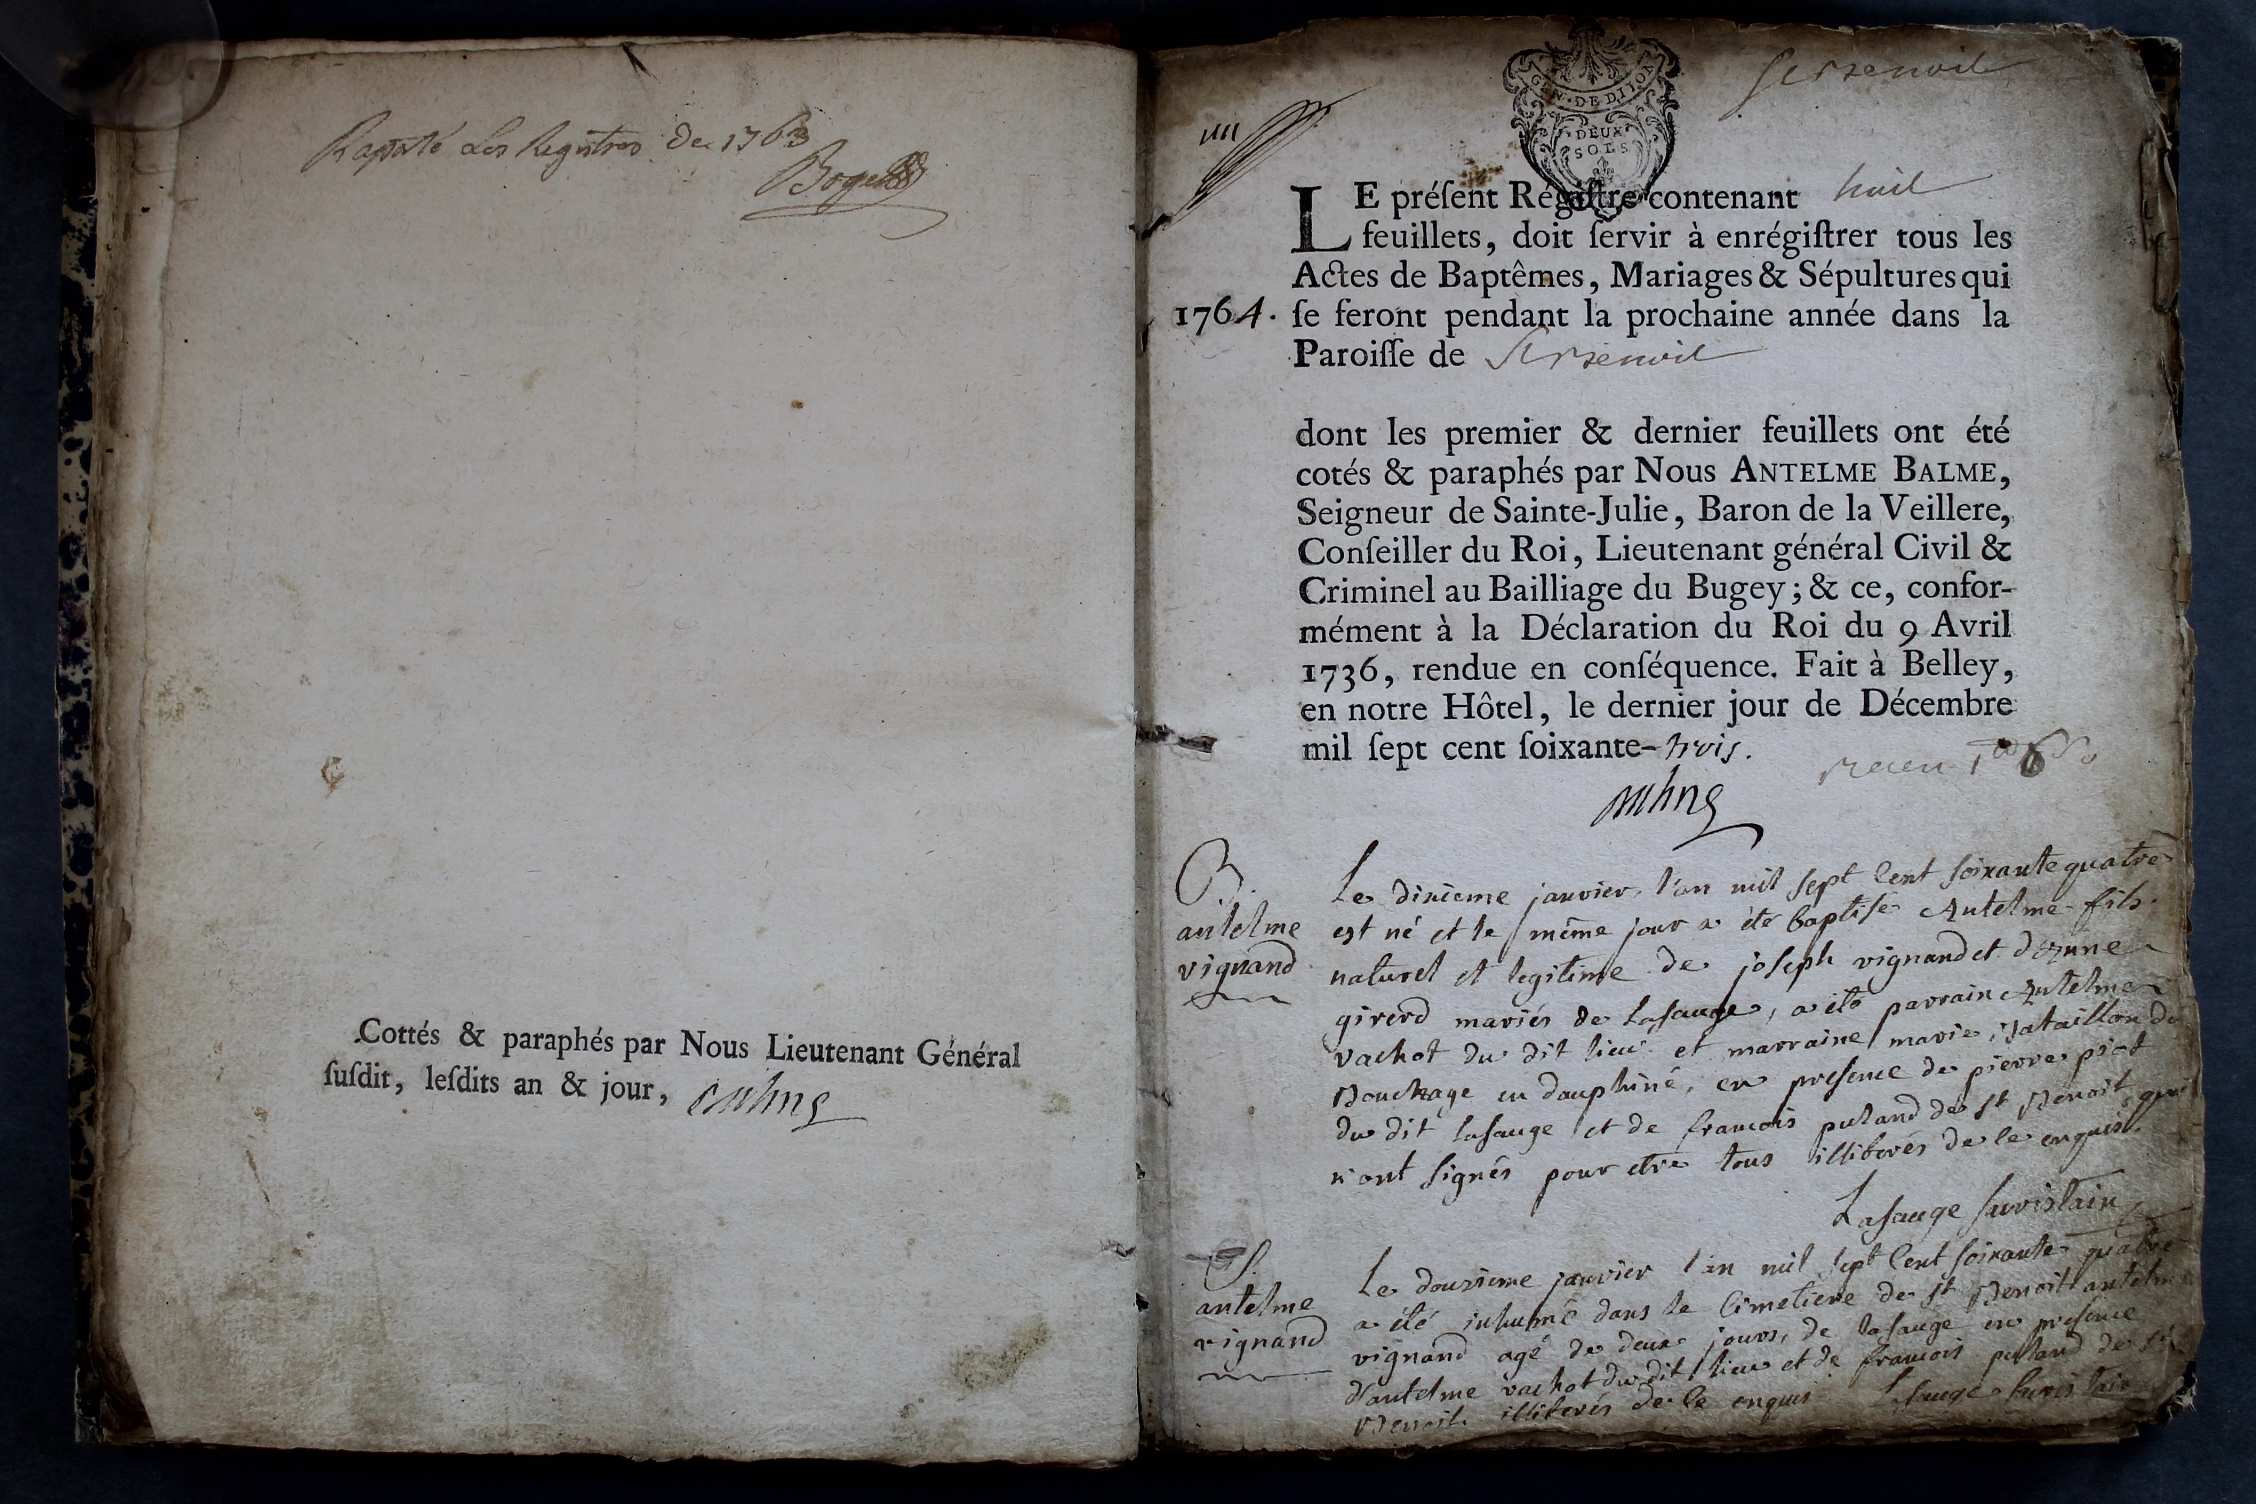 Rapporté Les Registres De 1763
Cottés & paraphés par Nous Lieutenant Général
ſuſdit, leſdits an & jour,
GEN · DE DIJON
DEUX
SOLS
LE préſent Régiſtre contenant huit
feuillets, doit ſervir à enrégiſtrer tous les
Actes de Baptêmes, Mariages & Sépultures qui
1764. ſe feront pendant la prochaine année dans la
Paroiſſe de
dont les premier & dernier feuillets ont été
cotés & paraphés par Nous ANTELME BALME,
Seigneur de Sainte-Julie, Baron de la Veillere,
Conſeiller du Roi, Lieutenant général Civil &
Criminel au Bailliage du Bugey; & ce, confor-
mément à la Déclaration du Roi du 9 Avril
1736, rendue en conſéquence. Fait à Belley,
en notre Hôtel, le dernier jour de Décembre
mil ſept cent ſoixante-trois.
B.
antelme
vignand
Le dixieme janvier l'an mil sept Cent soixante quatre
est né et le même jour a été baptisé Antelme fils
naturel et legitime de joseph vignand et d'
girerd mariés de Lasauge, a été parrain Antelme
vachot du dit lieu et marraine marie Bataillon du
Bouchage en dauphiné, en presence de pierre piot
du dit lasauge et de francois puland de st Benoit qui
n'ont signés pour etre tous illiterés de ce enquis.
Lasauge
S.
antelme
vignand
Le douzieme janvier l'an mil sept Cent soixante quatre
a été inhumé dans le Cimetiere de st Benoit antelme
vignand agé de deux jours, de lasauge en presence
d'antelme vachot du dit lieu et de francois puland de st
Benoit illiterés de ce enquis Lasauge